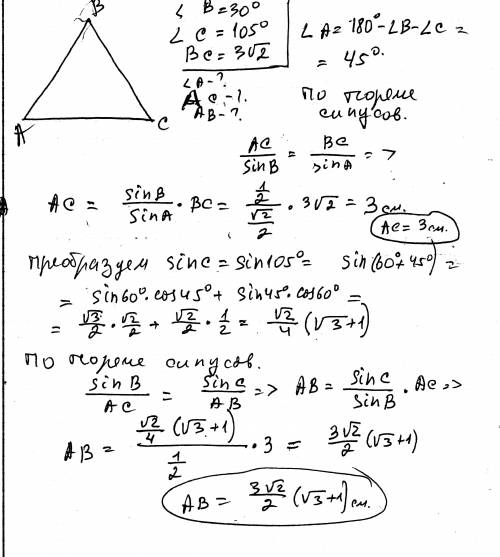 B
A
C
∠ B=30°
∠ C=105°
BC=3√2
∠A-?
AC-?
AB-?
∠A=180°-∠B-∠C=
= 45°.
По теореме
синусов.
AC/sinB = BC/sinA =>
AC = sinB/sinA · BC = (1/2)/(√2/2) · 3√2 = 3 см.
AC = 3 см.
преобразуем sinC = sin105° = sin(60°+45°) =
= sin60°·cos45° + sin45°·cos60° =
= √3/2 · √2/2 + √2/2 · 1/2 = √2/4 (√3+1)
По теореме синусов.
sinB/AC = sinC/AB => AB = sinC/sinB · AC =>
AB = (√2/4 (√3+1))/(1/2) · 3 = 3√2/2 (√3+1)
AB = 3√2/2 (√3+1) см.